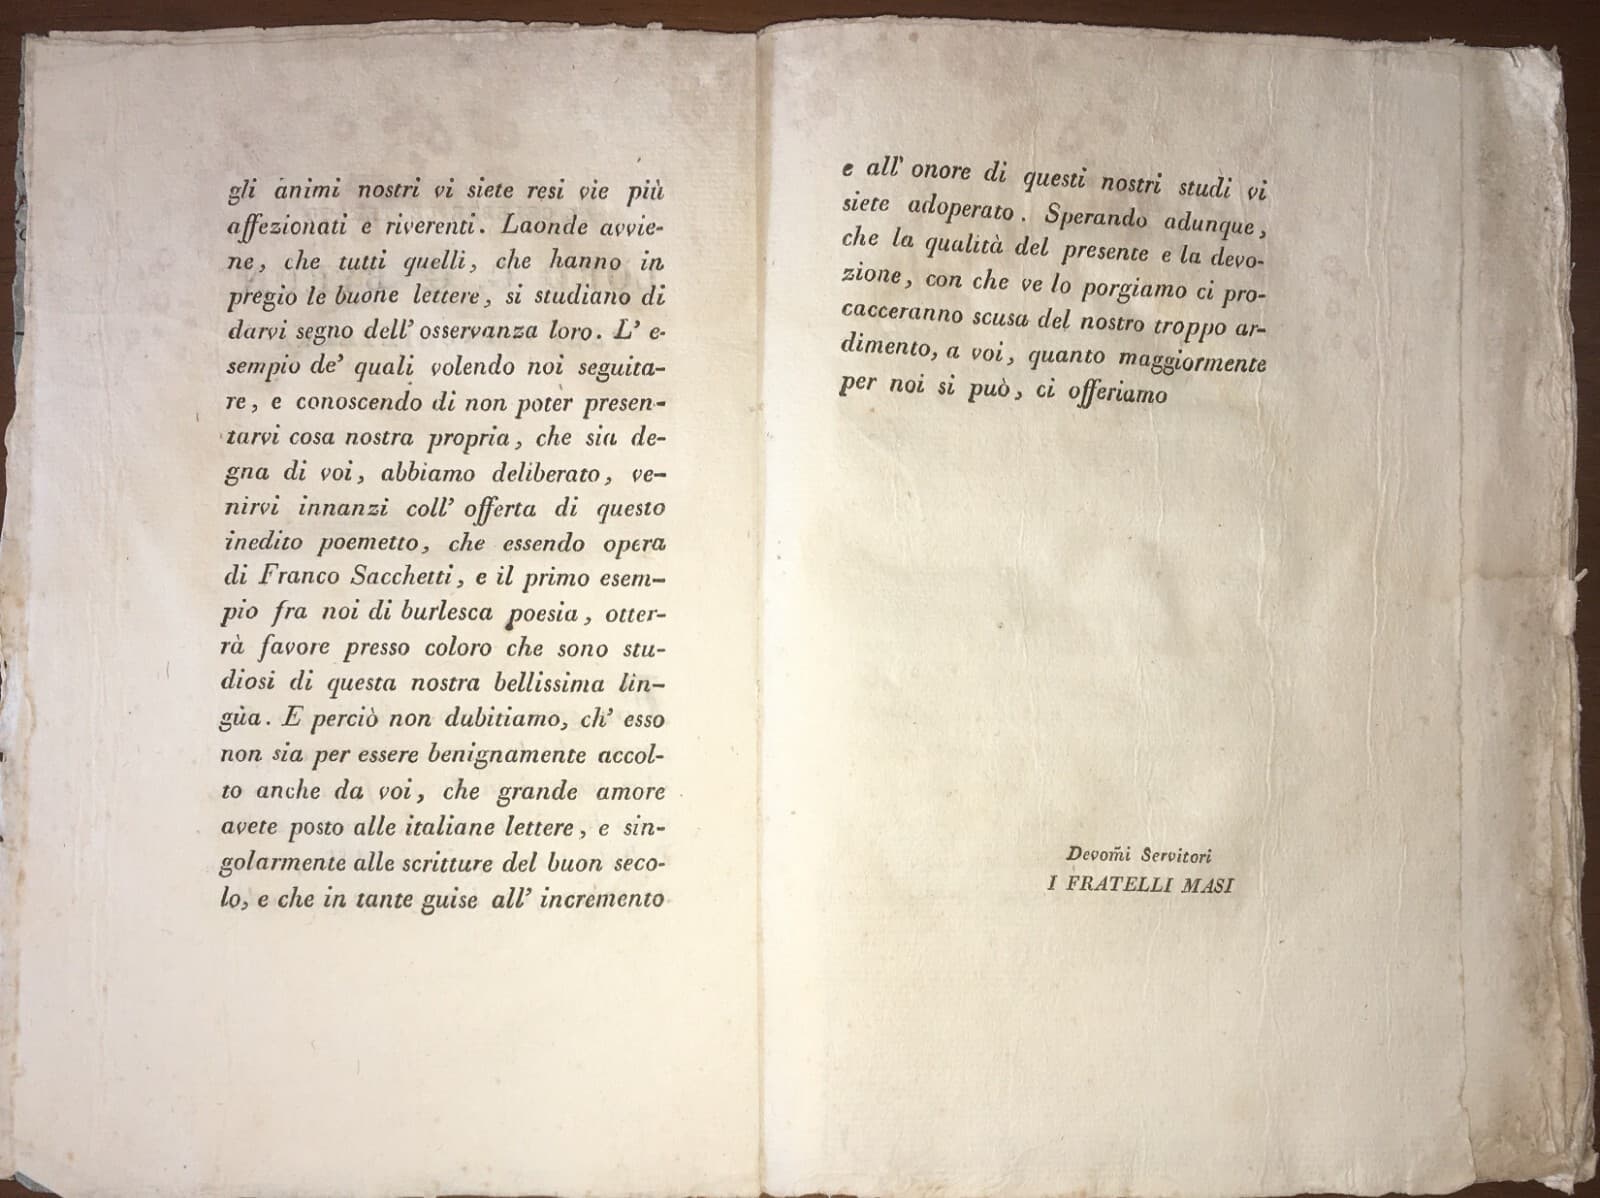 gli animi nostri vi siete resi vie più
affezionati e riverenti. Laonde avvie-
ne, che tutti quelli, che hanno in
pregio le buone lettere, si studiano di
darvi segno dell' osservanza loro. L' e-
sempio de' quali volendo noi seguita-
re, e conoscendo di non poter presen-
tarvi cosa nostra propria, che sia de-
gna di voi, abbiamo deliberato, ve-
nirvi innanzi coll' offerta di questo
inedito poemetto, che essendo opera
di Franco Sacchetti, e il primo esem-
pio fra noi di burlesca poesia, otter-
rà favore presso coloro che sono stu-
diosi di questa nostra bellissima lin-
gua. E perciò non dubitiamo, ch' esso
non sia per essere benignamente accol-
to anche da voi, che grande amore
avete posto alle italiane lettere, e sin-
golarmente alle scritture del buon seco-
lo, e che in tante guise all' incremento
e all' onore di questi nostri studi vi
siete adoperato. Sperando adunque,
che la qualità del presente e la devo-
zione, con che ve lo porgiamo ci pro-
cacceranno scusa del nostro troppo ar-
dimento, a voi, quanto maggiormente
per noi si può, ci offeriamo
Devom̃i Servitori
I FRATELLI MASI